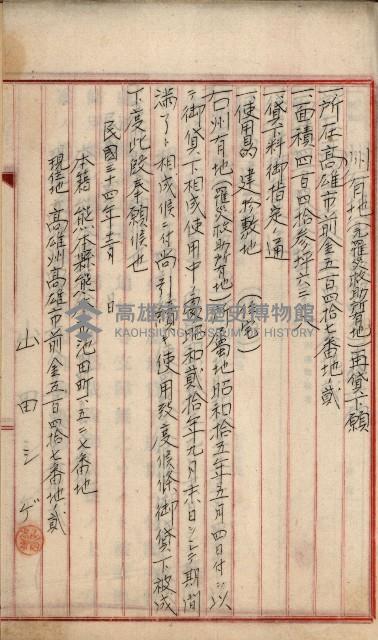 州有地(元罹災救助所有地)再貸下願
一、所在 高雄市前金五百四拾七番地ノ貳
一、面積 四百四拾參坪六二
一、貸下料 御指定ノ通
一、使用 建物敷地(住宅)
右州有地(罹災救助所有地)所屬地昭和拾五年五月四日付ヲ以
テ御貸下相成使用中ノ處昭和貳拾年九月末日ヲ以テ期間
滿了ト相成候ニ付尚引續キ使用致度候條御貸下被成
下度此段奉願候也
民國三十四年十二月 日
本籍 熊本縣熊本市池田町一、五二七番地
現住地 高雄州高雄市前金五百四拾七番地ノ貳
山田シゲ
高雄市立歷史博物館
KAOHSIUNG MUSEUM OF HISTORY